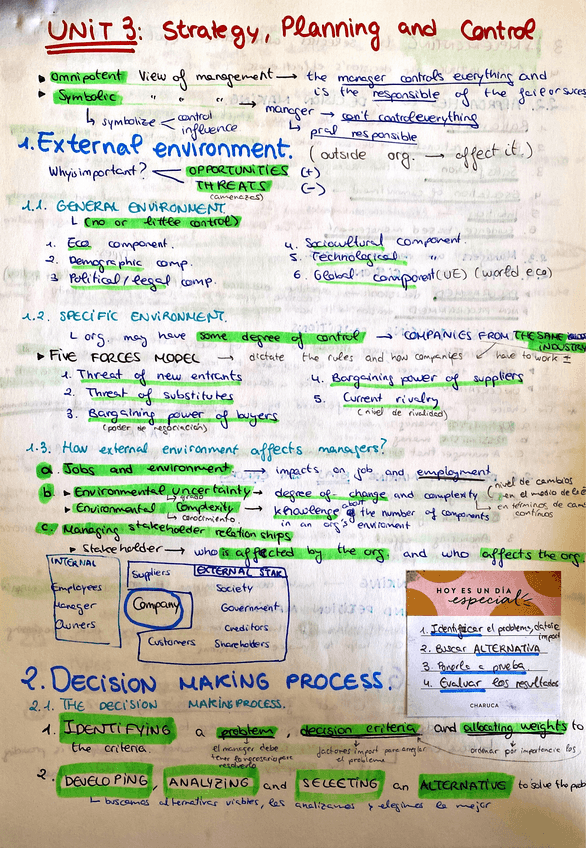 UNIT 3: Strategy, Planning and Control
▸ Omnipotent View of management → the manager controls everything and
is the responsible of the fail or succes
▸ Symbolic " " " → manager → can't control everything
↳ symbolize < control
influence
↳ responsible
1. External environment. (outside org. → affect it.)
Why is important? < OPPORTUNITIES (+)
THREATS (-)
(amenazas)
1.1. GENERAL ENVIRONMENT
↳ (no or little control)
1. Eco component.
2. Demographic comp.
3. Political/legal comp.
4. Sociocultural component.
5. Technological "
6. Global component (UE) (world eco)
1.2. SPECIFIC ENVIRONMENT.
↳ org. may have some degree of control → COMPANIES FROM THE SAME
INDUSTRY
▸ FIVE FORCES MODEL → dictate the rules and how companies have to work
1. Threat of new entrants
2. Threat of substitutes
3. Bargaining power of buyers
(poder de negociación)
4. Bargaining power of suppliers
5. Current rivalry
(nivel de rivalidad)
1.3. How external environment affects managers?
a. Jobs and environment. → impacts on job and employment
b. ▸ Environmental uncertainty → degree of change and complexity (nivel de cambios
grado
en el medio de la
▸ Environmental Complexity → knowleage about the number of components
conocimiento
in an org's enviroment
en términos de
continuos
c. Managing stakeholder relationships
▸ Stakeholder → who is affected by the org. and who affects the org.
INTERNAL
Employees
Manager
Owners
Suppliers
EXTERNAL STAK
Company
Customers
Society
Government
Creditors
Shareholders
HOY ES UN DÍA
especial
1. Identificar el problema,
import
2. Buscar ALTERNATIVA
3. Ponerlo a prueba
4. Evaluar los resultados
CHARUCA
2. DECISION MAKING PROCESS.
2.1. THE DECISION MAKING PROCESS.
1. IDENTIFYING a problem, decision criteria, and allocating weights to
the criteria.
el manager debe
tener lo necesario para
resolverlo
factores import para arreglar
el problema
ordenar por importancia los
2. DEVELOPING, ANALYZING and SELECTING an ALTERNATIVE to solve the prob
↳ buscamos alternativas viables, las analizamos y elegimos la mejor